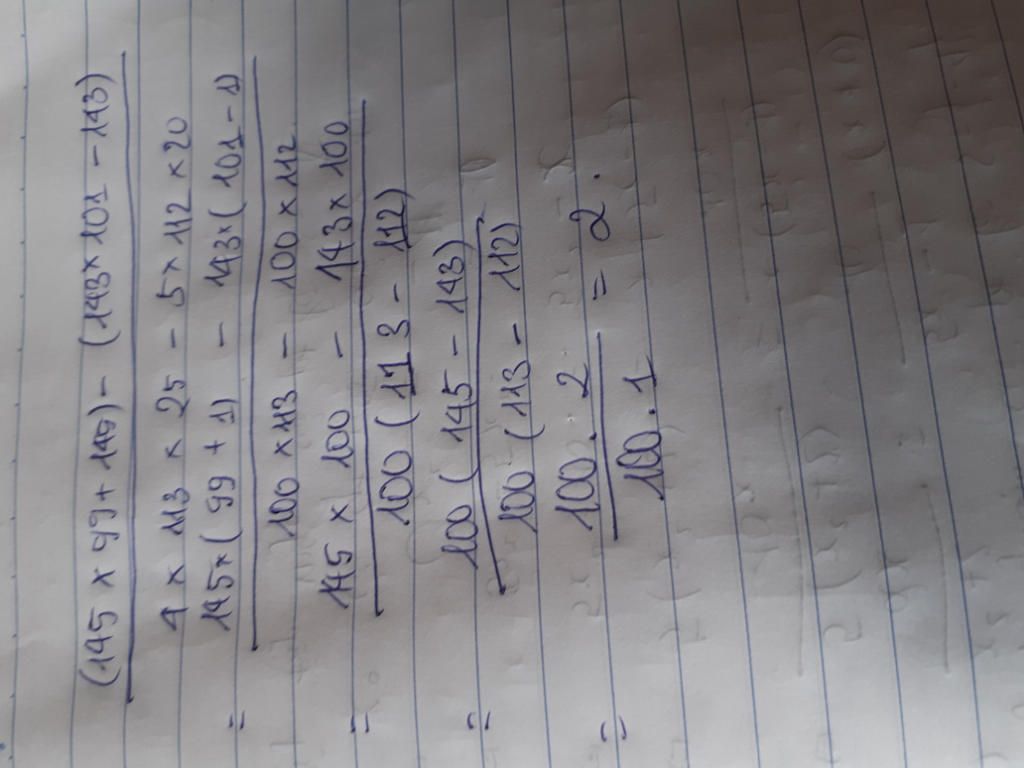 (145 x 99 + 145) - (143 x 101 - 143)
4 x 113 x 25 - 5 x 112 x 20
= 145 x ( 99 + 1) - 143 x ( 101 - 1)
100 x 113 - 100 x 112
= 145 x 100 - 143 x 100
100 ( 113 - 112)
= 100 ( 145 - 143)
100 ( 113 - 112)
= 100 . 2 = 2 .
100 . 1